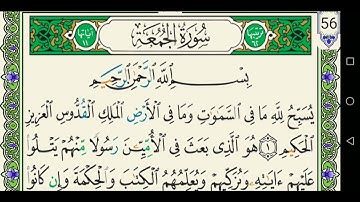 56
ترتيبها ٦٢ سُورَةُ الْجُمُعَةِ آياتها ١١
بِسْمِ اللَّهِ الرَّحْمَٰنِ الرَّحِيمِ
يُسَبِّحُ لِلَّهِ مَا فِي السَّمَٰوَٰتِ وَمَا فِي الْأَرْضِ الْمَلِكِ الْقُدُّوسِ الْعَزِيزِ
الْحَكِيمِ ١ هُوَ الَّذِي بَعَثَ فِي الْأُمِّيِّينَ رَسُولًا مِّنْهُمْ يَتْلُوا
عَلَيْهِمْ ءَايَٰتِهِ وَيُزَكِّيهِمْ وَيُعَلِّمُهُمُ الْكِتَٰبَ وَالْحِكْمَةَ وَإِن كَانُوا